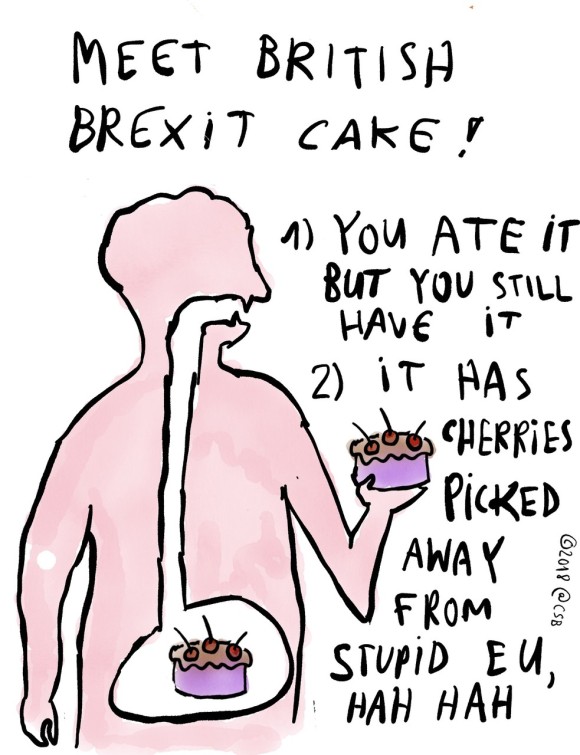 MEET BRITISH
BREXIT CAKE!
1) YOU ATE IT
BUT YOU STILL
HAVE IT
2) IT HAS
CHERRIES
PICKED
AWAY
FROM
STUPID EU,
HAH HAH
©2018 @CSB